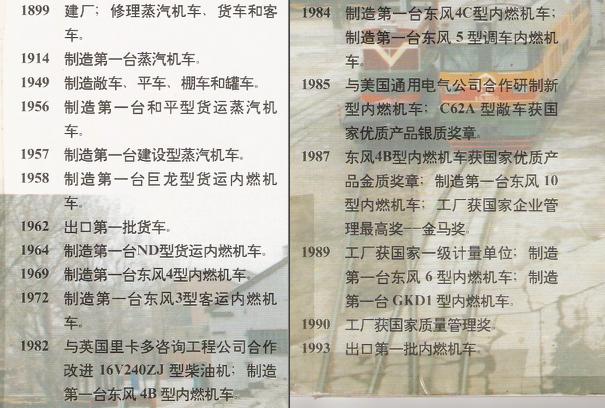 1899 建厂；修理蒸汽机车、货车和客
车。
1914 制造第一台蒸汽机车。
1949 制造敞车、平车、棚车和罐车。
1956 制造第一台和平型货运蒸汽机
车。
1957 制造第一台建设型蒸汽机车。
1958 制造第一台巨龙型货运内燃机
车。
1962 出口第一批货车。
1964 制造第一台ND型货运内燃机车。
1969 制造第一台东风4型内燃机车。
1972 制造第一台东风3型客运内燃机
车。
1982 与英国里卡多咨询工程公司合作
改进 16V240ZJ 型柴油机；制造
第一台东风 4B 型内燃机车
1984 制造第一台东风4C型内燃机车；
制造第一台东风 5 型调车内燃机
车。
1985 与美国通用电气公司合作研制新
型内燃机车；C62A 型敞车获国
家优质产品银质奖章。
1987 东风4B型内燃机车获国家优质产
品金质奖章；制造第一台东风 10
型内燃机车；工厂获国家企业管
理最高奖—金马奖。
1989 工厂获国家一级计量单位；制造
第一台东风 6 型内燃机车；制造
第一台 GKD1 型内燃机车。
1990 工厂获国家质量管理奖。
1993 出口第一批内燃机车。